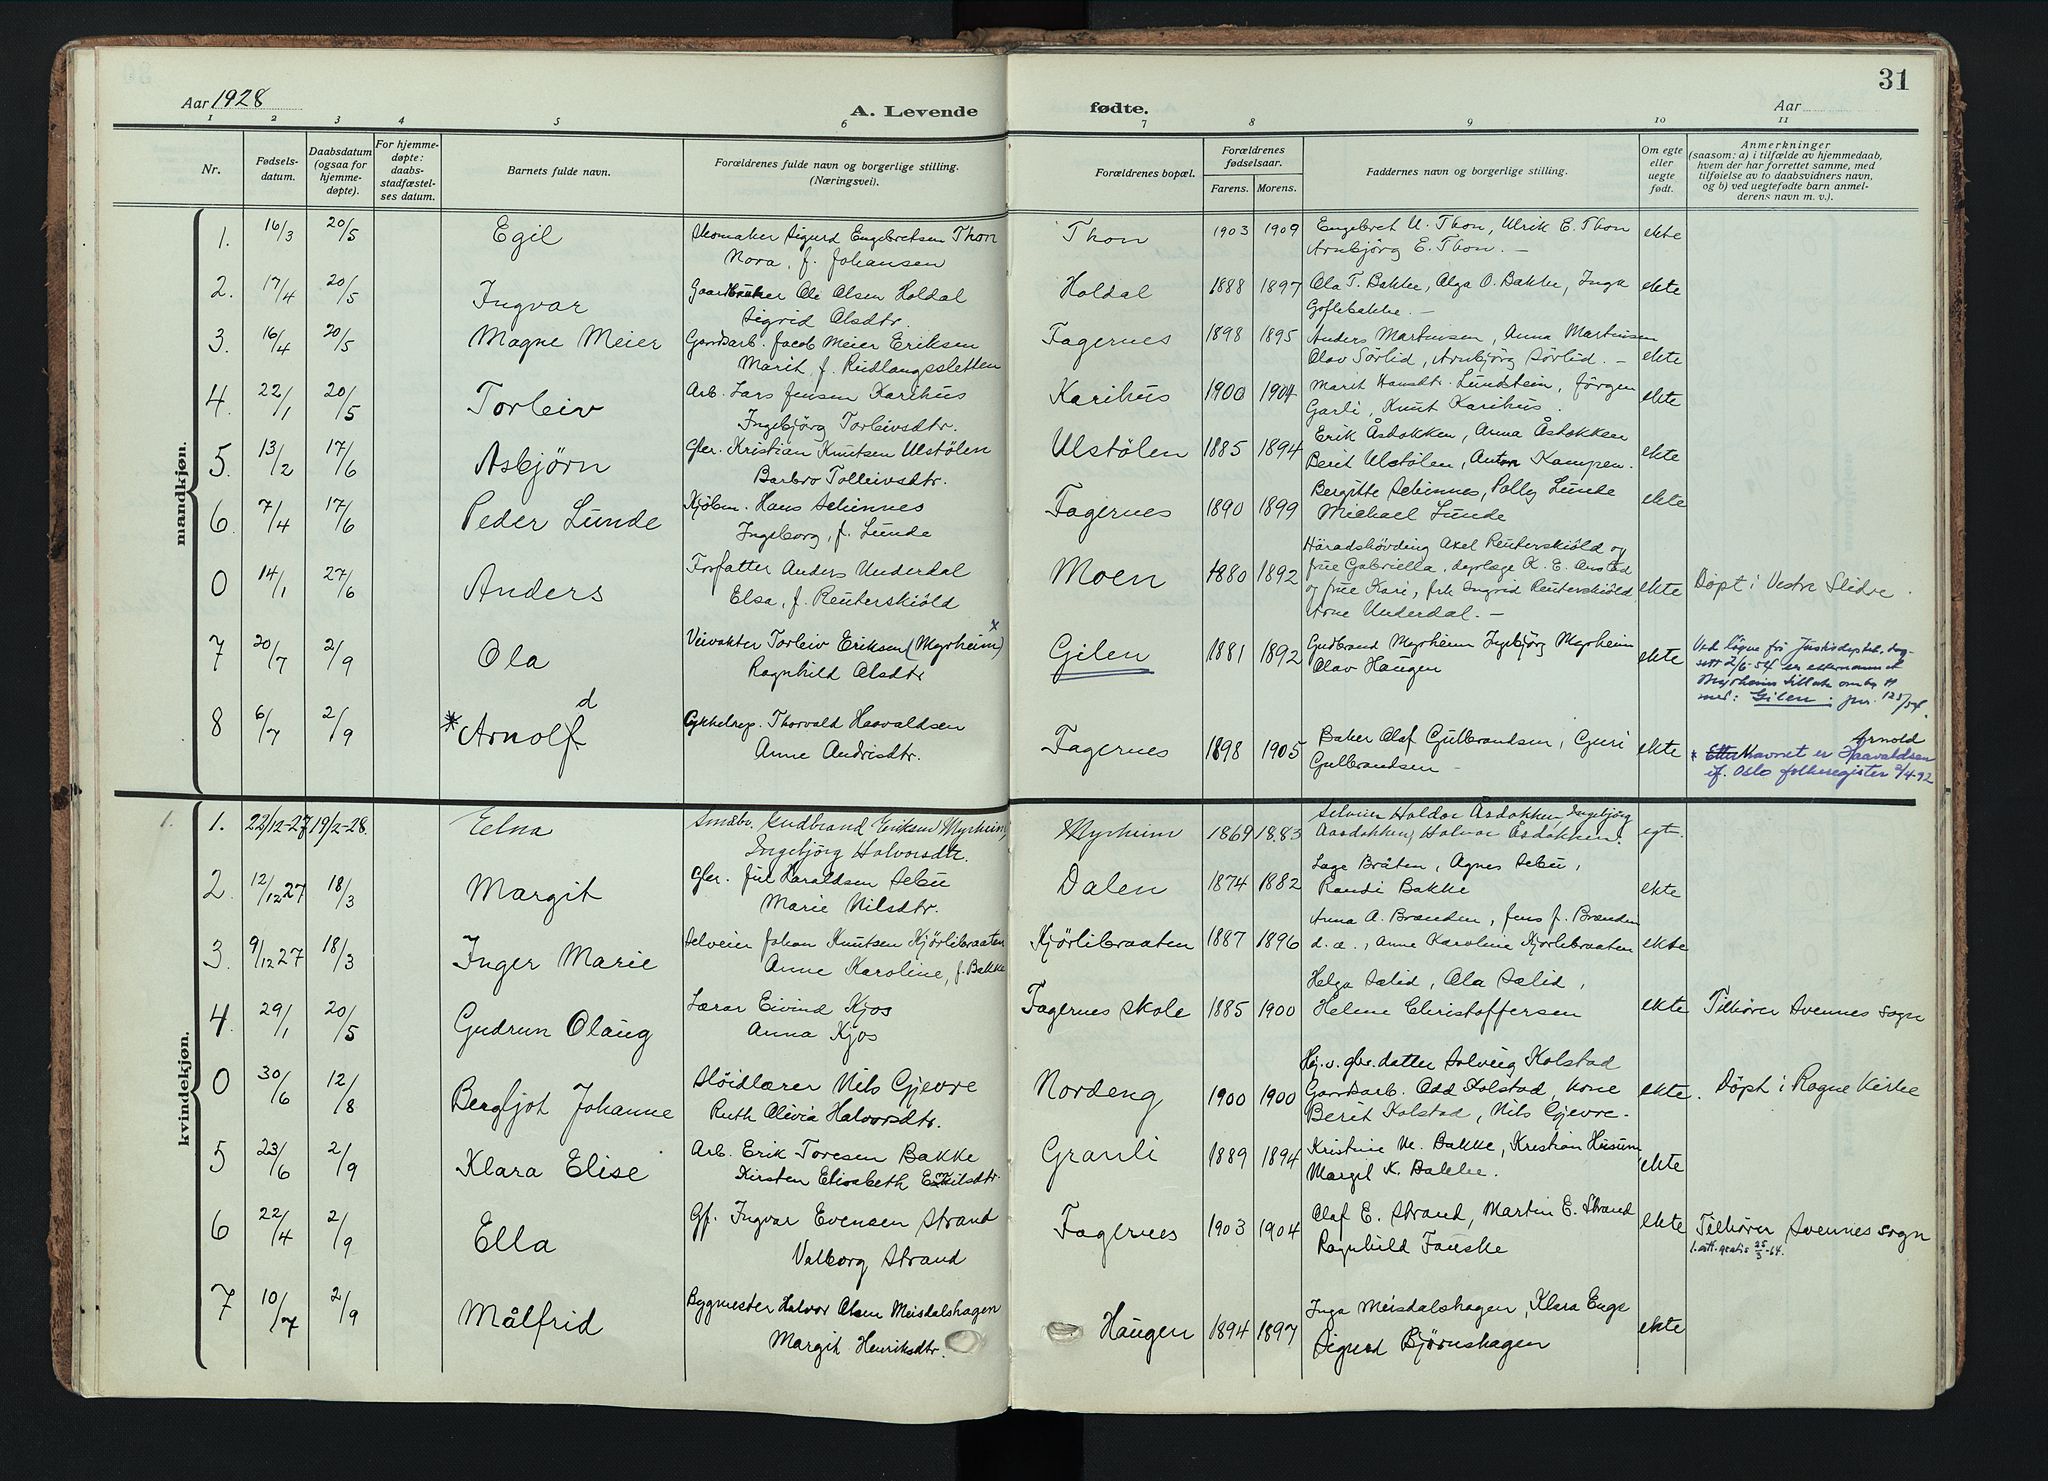 31
Aar 1928
A. Levende
fødte.
Aar
1 2 3 4 5 6 7 8 9 10 11
Nr.
Fødsels-
datum.
Daabsdatum
(ogsaa for
hjemme-
døpte).
For hjemme-
døpte:
daabs-
stadfæstel-
ses datum.
Barnets fulde navn.
Forældrenes fulde navn og borgerlige stilling.
(Næringsvei).
Forældrenes bopæl.
Forældrenes
fødselsaar.
Farens. Morens.
Faddernes navn og borgerlige stilling.
Om egte
eller
uegte
født.
Anmerkninger
(saasom: a) i tilfælde av hjemmedaab,
hvem der har forrettet samme, med
tilføielse av to daabsvidners navn,
og b) ved uegtefødte barn anmel-
derens navn m. v.).
mandkjøn.
1. 16/3 20/5 Egil Skomaker Sigurd Engebretsen Thon Thon 1903 1909 Engebret U. Thon, Ulrik E. Thon ekte
Nora, f. Johansen Arnbjørg E. Thon. —
2. 17/4 20/5 Ingvar Gaardbruker Ole Olsen Holdal Holdal 1888 1897 Ola T. Bakke, Olga O. Bakke, Inga ekte
Sigrid Olsdtr Goflebakke. —
3. 16/4 20/5 Magne Meier Gaardsarb. Jacob Meier Eriksen Fagernes 1898 1895 Anders Martinsen, Anna Martinsen
Marit, f. Rudlangssletten Olav Sørlid, Arnbjørg Sørlid. — ekte
4. 22/1 20/5 Torleiv Arb. Lars Jensen Karihus Karihus 1900 1904 Marit Hansdtr. Lundstein, Jørgen ekte
Ingebjørg Torleivsdtr. Garli, Knut Karihus.
5. 13/2 17/6 Asbjørn Gbr. Kristian Knutsen Ulstølen Ulstølen 1885 1894 Erik Åsdokken, Anna Åsdokken ekte
Barbro Tolleivsdtr. Berit Ulstølen, Anton Kampen.
6. 7/4 17/6 Peder Lunde Kjøbm. Hans Schinnes Fagernes 1890 1899 Bergitte Schinnes, Polly Lunde ekte
Ingeborg, f. Lunde Michael Lunde
0 14/1 27/6 Anders Forfatter Anders Underdal Moen 1880 1892 Häradshövding Axel Reuterskiöld og
Elsa, f. Reuterskiöld frue Gabriella, dyrlæge K. E.
og frue Kari, frk Ingrid Reuterskiöld ekte Døpt i Vestre Slidre.
Arne Underdal. —
7 20/7 2/9 Ola Veivokter Torleiv Eriksen (Myrheim) x Gilen 1881 1892 Gudbrand Myrheim Ingebjørg Myrheim ekte
Ragnhild Olsdtr Olav Haugen
Myrheim
med: Gilen jnr. 125/54.
8 6/7 2/9 * Arnolf d Sykkelrep. Thorvald Haavaldsen Fagernes 1898 1905 Baker Olaf Gulbrandsen, Guri ekte
Anne Andrisdtr. Gulbrandsen —
Arnold
* Etternavnet er Haavaldsen
if. Oslo folkeregister 2/4-92
kvindekjøn.
1. 1. 22/12-27 19/2-28. Edna Småbr. Gudbrand Eriksen Myrheim, Myrheim 1869 1883 Selveier Haldor Åsdokken, Ingebjørg egt.
Ingebjørg Halvorsdtr. Aasdokken, Halvor Åsdokken.
2. 12/12 27 18/3 Margit Gbr. Juul Haraldsen Sebu Dalen 1874 1882 Lage Bråten, Agnes Sebu, ekte
Marie Nilsdtr. Randi Bakke
3. 9/12 27 18/3 Inger Marie Selveier Johan Knutsen Kjørlibraaten Kjørlibraaten 1887 1896 Anna A. Brænden, Jens J. Brænden
Anne Karoline, f. Bakke d. æ., Anne Karoline Kjørlibraaten ekte
4. 29/1 20/5 Gudrun Olaug Lærar Eivind Kjos Fagernes skole 1885 1900 Helga Sælid, Ola Sælid, ekte Tilhører Svennes sogn
Anna Kjos Helene Christoffersen
0 30/6 12/8 Bergljot Johanne Sløidlærer Nils Gjevre Nordeng 1900 1900 Hj.v. gbr.datter Solveig Kolstad
Ruth Olivia Halvorsdtr. Gaardsarb. Odd Kolstad, kone ekte. Døpt i Rogne Kirke
Berit Kolstad, Nils Gjevre.
5 23/6 2/9 Klara Elise Arb. Erik Toresen Bakke Granli 1889 1894 Kristine M. Bakke, Kristian Husum ekte
Kirsten Elisabeth Eskilsdtr. Margit K. Bakke.
6 22/4 2/9 Ella Gf. Ingvar Evensen Strand Fagernes 1903 1904 Olaf E. Strand, Martin E. Strand ekte Tilhører Svennes sogn
Valborg Strand Ragnhild Fauske 1. att. gratis 25/3-64.
7 10/7 2/9 Målfrid Bygmester Halvor Olsen Meisdalshagen Haugen 1894 1897 Inga Meisdalshagen, Klara Enge ekte
Margit Henriksdtr. Sigurd Bjørnshagen